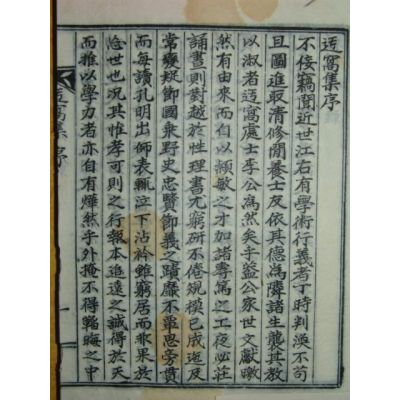 迃窩集序
不佞竊聞近世江右有學術行義者丁時判渙不苟
且圖進取清修閒養士友依其德爲隣諸生襲其教
以淑者迃窩處士李公爲然矣乎蓋公家世文獻
然有由來而自以穎敏之才加諸專篤之工夜必莊
誦晝則對越於性理書尤窮研不倦規模已成逌及
常變疑節國乘野史忠賢節義之蹟靡不覃思旁貫
而每讀孔明出師表輒泣下沾衿雖窮居而非果於
忘世也況其惟孝可則之行報本追遠之誠得於天
而推以學力者亦自有燁然乎外掩不得韜晦之中
迃窩集 序 一